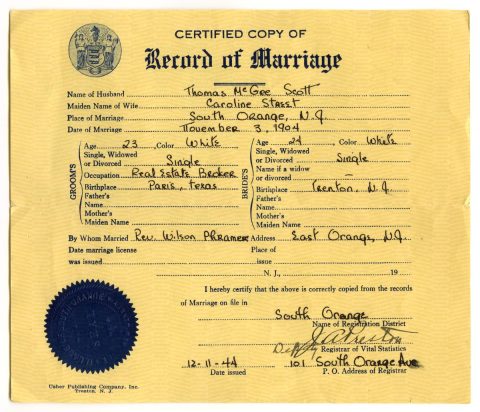 CERTIFIED COPY OF
Record of Marriage
Name of Husband Thomas McGee Scott
Maiden Name of Wife Caroline Street
Place of Marriage South Orange, N.J.
Date of Marriage November 3, 1904
GROOM'S
Age 23, Color White
Single, Widowed
or Divorced Single
Occupation Real Estate Broker
Birthplace Paris, Texas
Father's
Name
Mother's
Maiden Name
BRIDE'S
Age 24, Color White
Single, Widowed
or Divorced Single
Name if a widow
or divorced –
Birthplace Trenton, N.J.
Father's
Name
Mother's
Maiden Name
By Whom Married Rev. Wilson Address East Orange, N.J.
Date marriage license Place of
was issued issue
N. J., 19
I hereby certify that the above is correctly copied from the records
of Marriage on file in
South Orange
Name of Registration District
Deputy
Registrar of Vital Statistics
12-11-44 101 South Orange Ave
Date issued P. O. Address of Registrar
Usher Publishing Company, Inc.
Trenton, N. J.